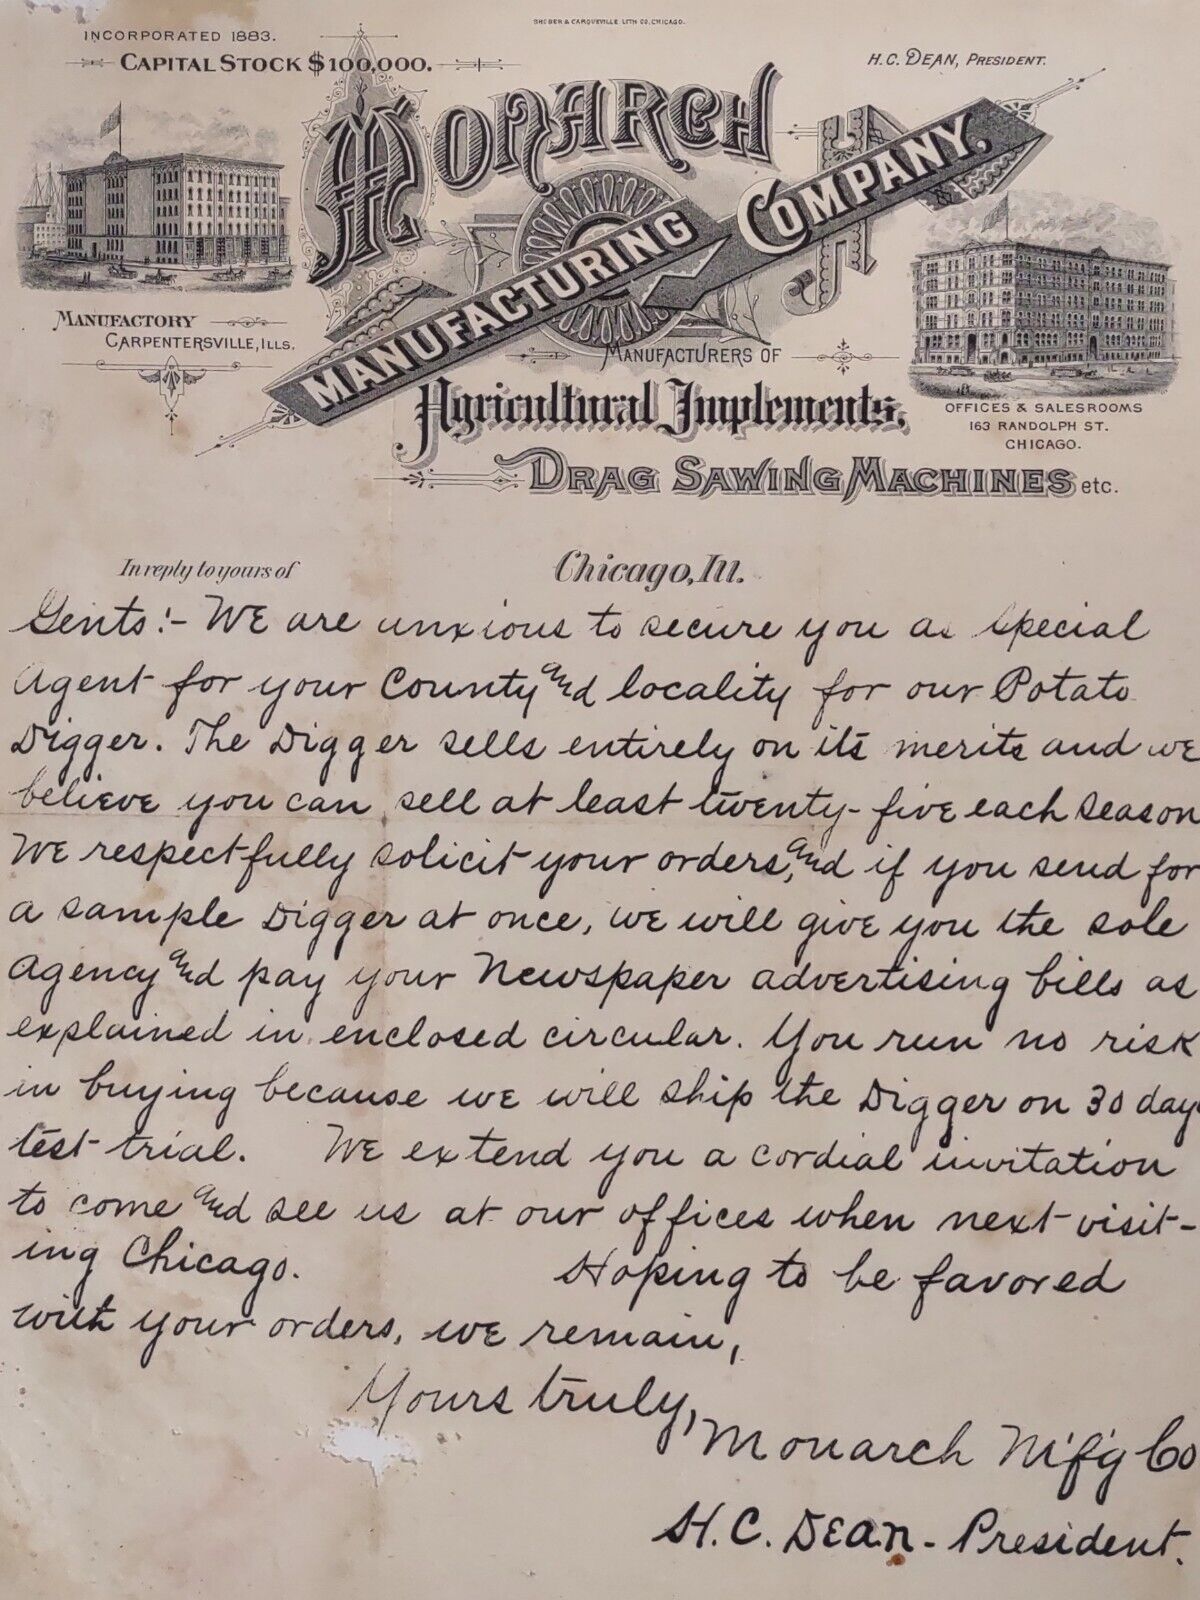 SHOBER & CARQUEVILLE LITH CO. CHICAGO.
INCORPORATED 1883.
CAPITAL STOCK $100,000.
H. C. DEAN, PRESIDENT.
MONARCH
MANUFACTURING COMPANY,
MANUFACTORY
CARPENTERSVILLE, ILLS.
MANUFACTURERS OF
Agricultural Implements,
DRAG SAWING MACHINES etc.
OFFICES & SALESROOMS
163 RANDOLPH ST.
CHICAGO.
In reply to yours of
Chicago, Ill.
Gents:- We are anxious to secure you as special
Agent for your County and locality for our Potato
Digger. The Digger sells entirely on its merits and we
believe you can sell at least twenty-five each season
We respectfully solicit your orders, and if you send for
a sample Digger at once, we will give you the sole
Agency and pay your Newspaper advertising bills as
explained in enclosed circular. You run no risk
in buying because we will ship the Digger on 30 day
test trial. We extend you a cordial invitation
to come and see us at our offices when next visit-
ing Chicago. Hoping to be favored
with your orders, we remain,
Yours truly,
Monarch M'f'g Co
H. C. Dean - President.